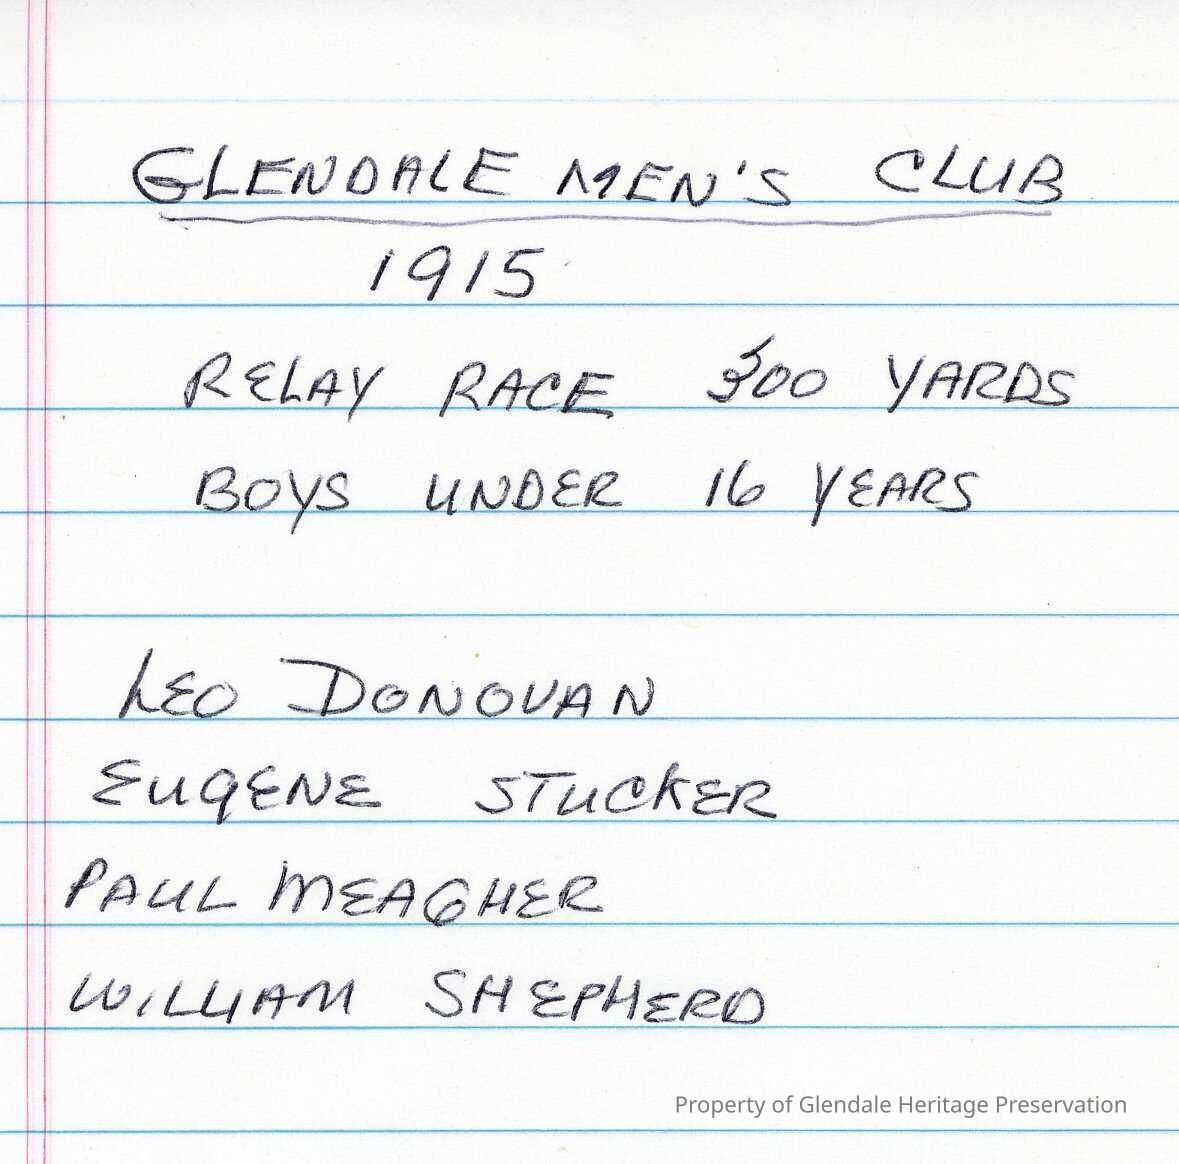 GLENDALE MEN'S CLUB
1915
RELAY RACE 300 YARDS
BOYS UNDER 16 YEARS
LEO DONOVAN
EUGENE STUCKER
PAUL MEAGHER
WILLIAM SHEPHERD
Property of Glendale Heritage Preservation